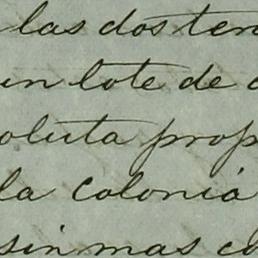 las dos ten
un lote de
oluta prop
la colonia
sin mas co